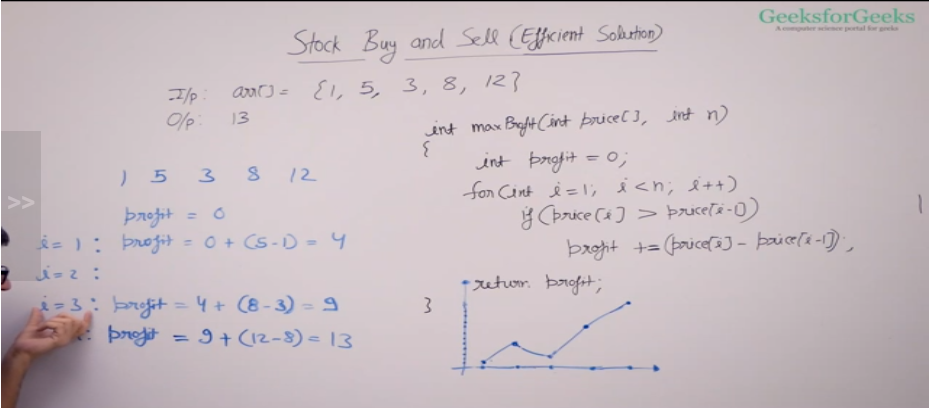 GeeksforGeeks
A computer science portal for geeks
Stock Buy and Sell (Efficient Solution)
I/p: arr[] = {1, 5, 3, 8, 12}
O/p: 13
1 5 3 8 12
profit = 0
i = 1 : profit = 0 + (5-1) = 4
i = 2 :
i = 3 : profit = 4 + (8-3) = 9
: profit = 9 + (12-8) = 13
int maxProfit(int price[], int n)
{
int profit = 0;
for(int i=1; i<n; i++)
if(price[i] > price[i-1])
profit += (price[i] - price[i-1]);
return profit;
}
>>